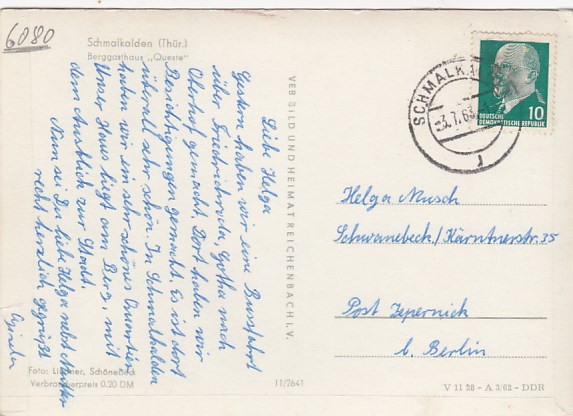 6080
Schmalkalden (Thür.)
Berggasthaus „Queste"
Liebe Helga
Gestern haben wir eine Busfahrt
über Friedrichroda, Gotha nach
Oberhof gemacht. Dort haben wir
Besichtigungen gemacht. Es ist dort
überall sehr schön. In Schmalkalden
haben wir ein sehr schönes Quartier
Unser Haus liegt am Berg, mit
dem Ausblick zur Stadt.
Nun sei Du liebe Helga nebst Mutter
recht herzlich gegrüßt
Foto: Lindner, Schönebeck
Verbraucherpreis 0.20 DM
VEB BILD UND HEIMAT REICHENBACH I. V.
11/7641
SCHMALKA
-3.7.63
10
DEUTSCHE
DEMOKRATISCHE REPUBLIK
Helga Musch
Schwanebeck/Kärntnerstr. 35
Post Zepernick
b. Berlin
V 11 28 - A 3/62 - DDR